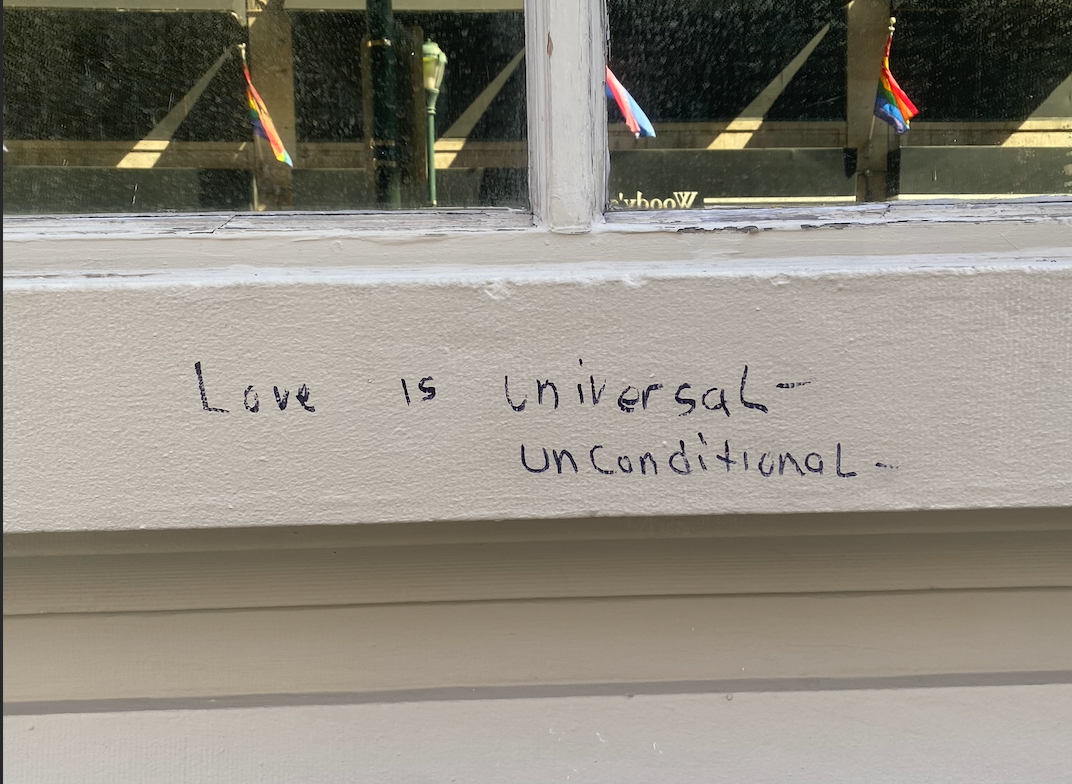 Woody's
Love is universal-
unconditional-